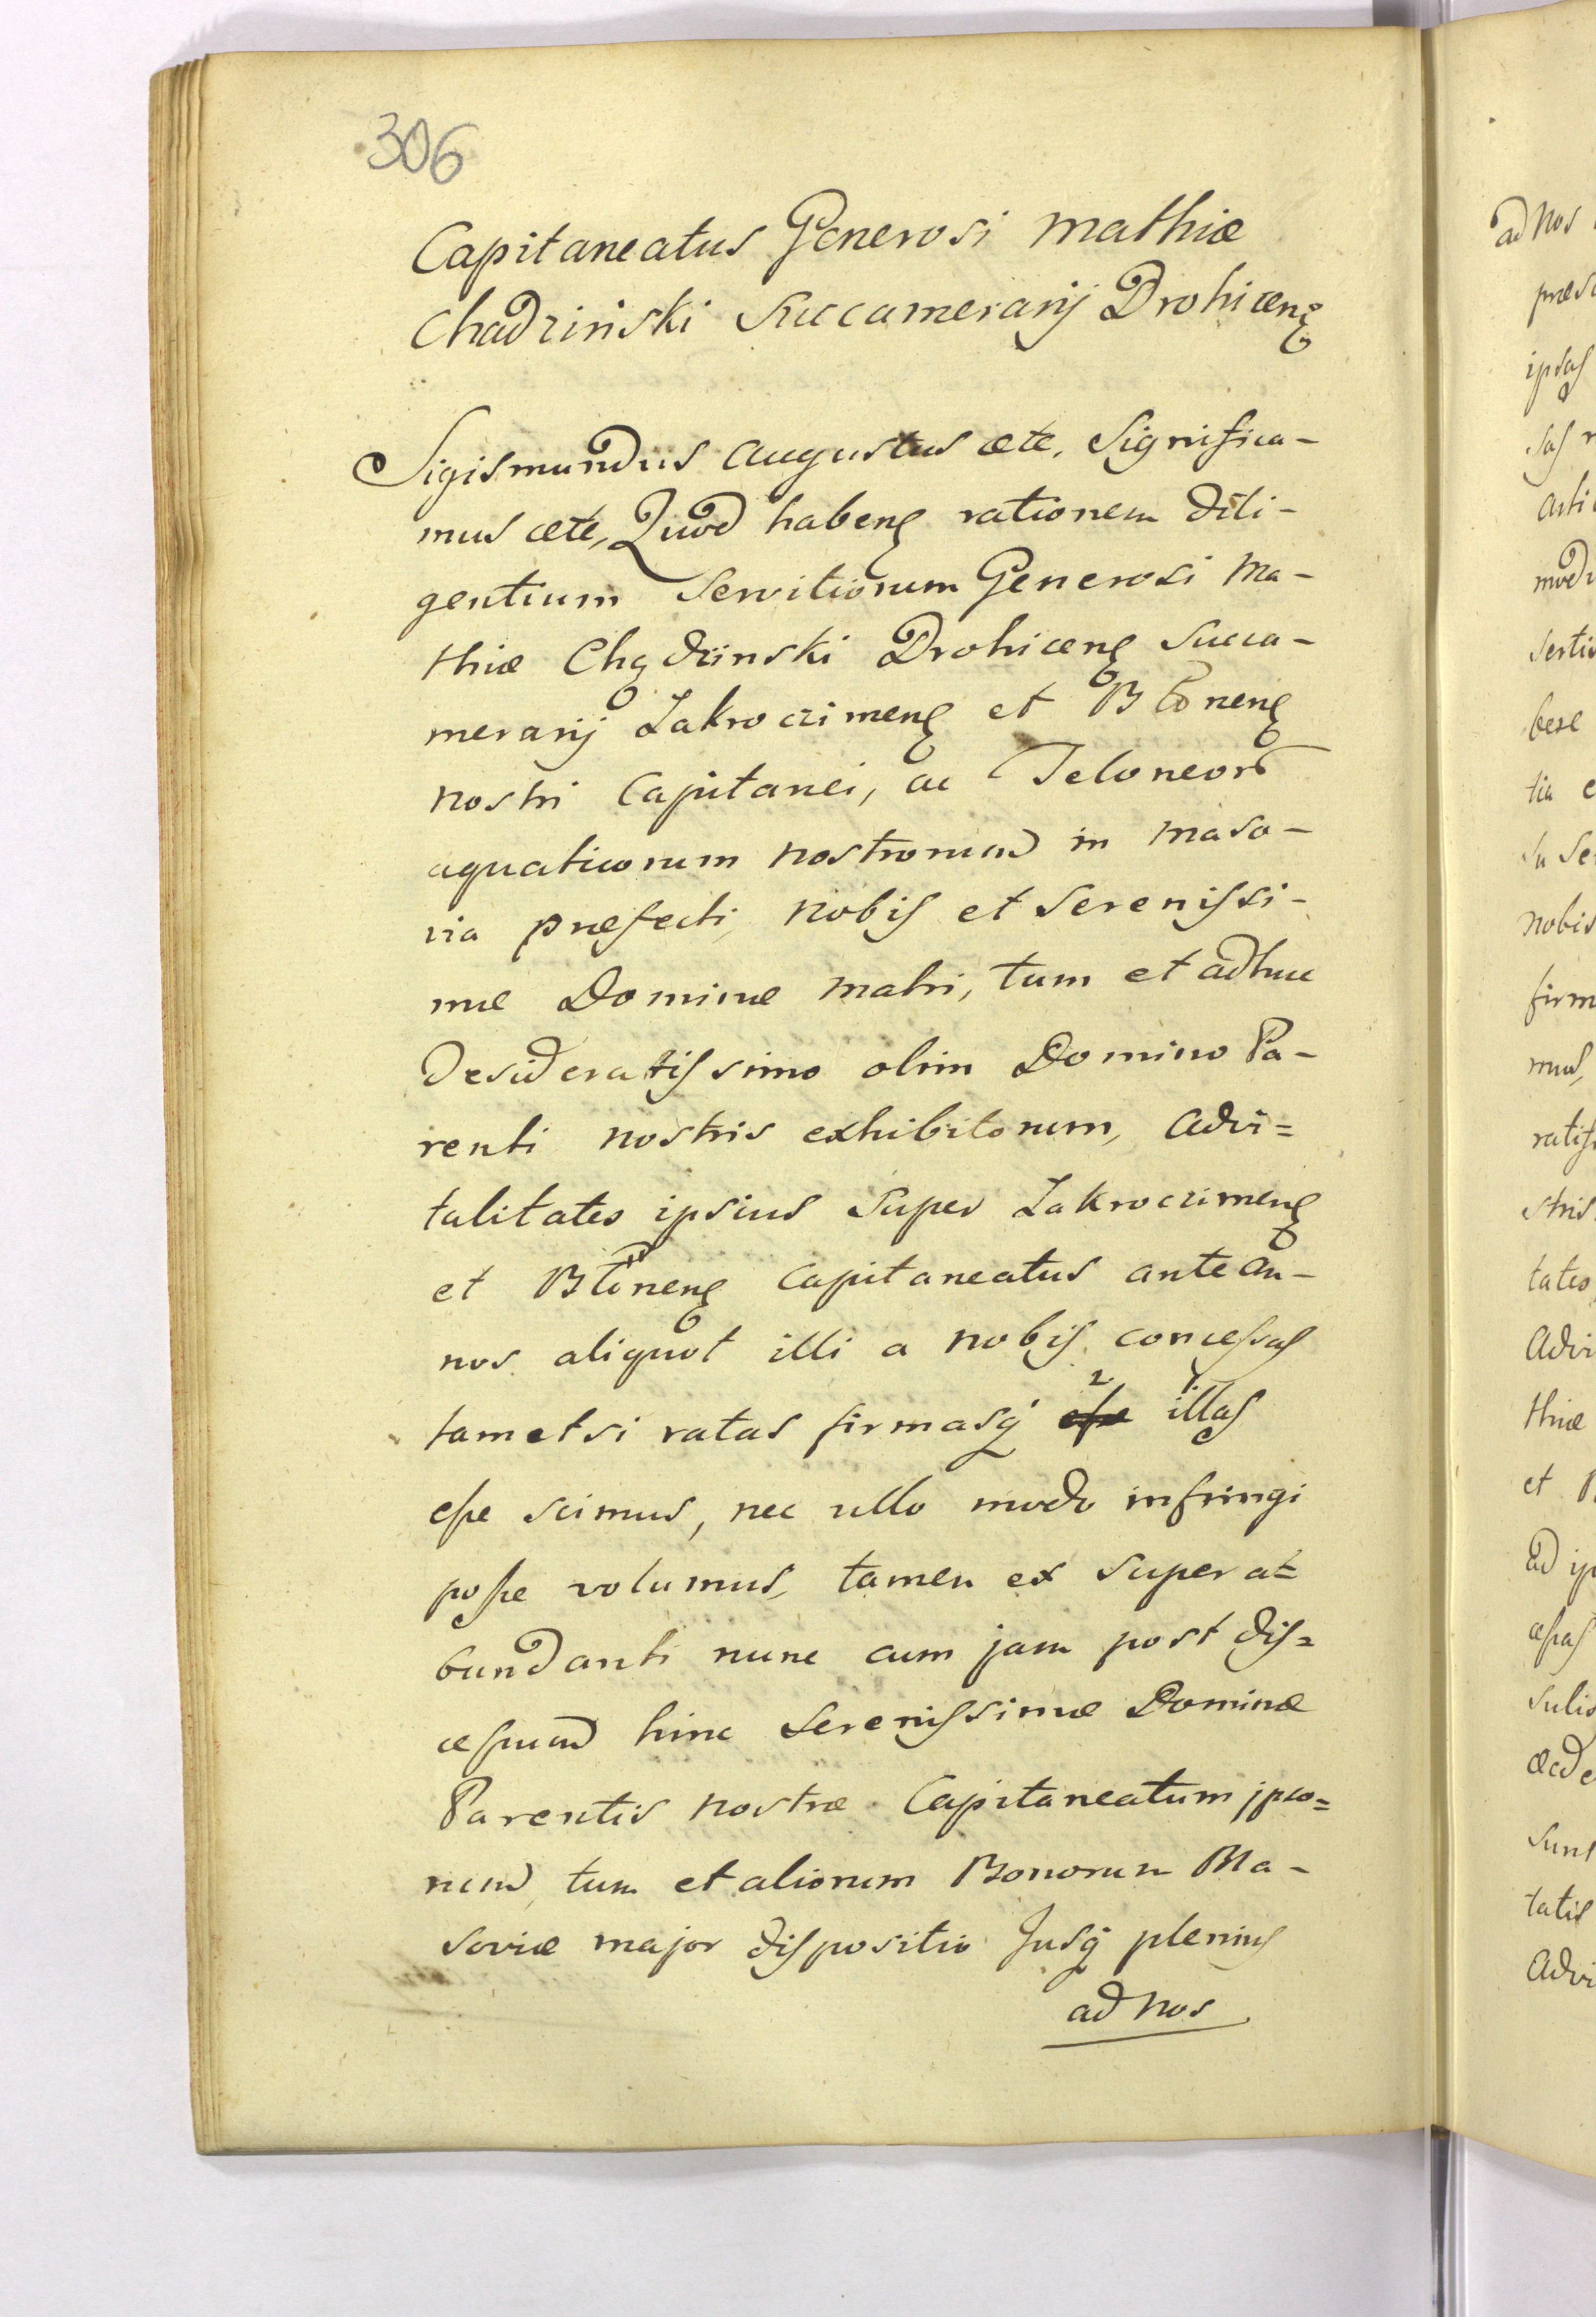 306
Capitaneatus Generosi Mathiæ
Chądziński Succamerarij Drohicenꝭ
Sigismundus Augustus etc. Significa-
mus etc, Quod habenꝭ rationem dili-
gentium Servitiorum Generosi Ma-
thiæ Chądzinski Drohicenꝭ Succa-
merarij Zakroczimenꝭ et Błonenꝭ
nostri Capitanei, ac Teloneor
aquaticorum nostrorum in Maso-
via præfecti, nobis et Serenissi-
mæ Dominæ Matri, tum et adhuc
desideratissimo olim Domino Pa-
renti nostris exhibitorum, Advi=
talitates ipsius super Zakroczimenꝭ
et Błonenꝭ Capitaneatus ante an-
nos aliquot illi a nobis concessas
tametsi ratas firmasq́ esse 2 illas 1
esse scimus, nec ullo modo infringi
posse volumus, tamen ex supera=
bundanti nunc cum jam post dis=
cessum hinc Serenissimæ Dominæ
Parentis nostræ Capitaneatum ipso=
rum, tum et aliorum Bonorum Ma-
soviæ major dispositio Jusq́ plenius
ad nos
ad nos
præs
ipsas
sas r
arti
modu
serti
bere
tia e
su se
nobis
firm
mus,
ratifi
stris
tates
Advi
thiæ
et B
ad ip
cessas
sulis
acce
sunt
tatis
Advi